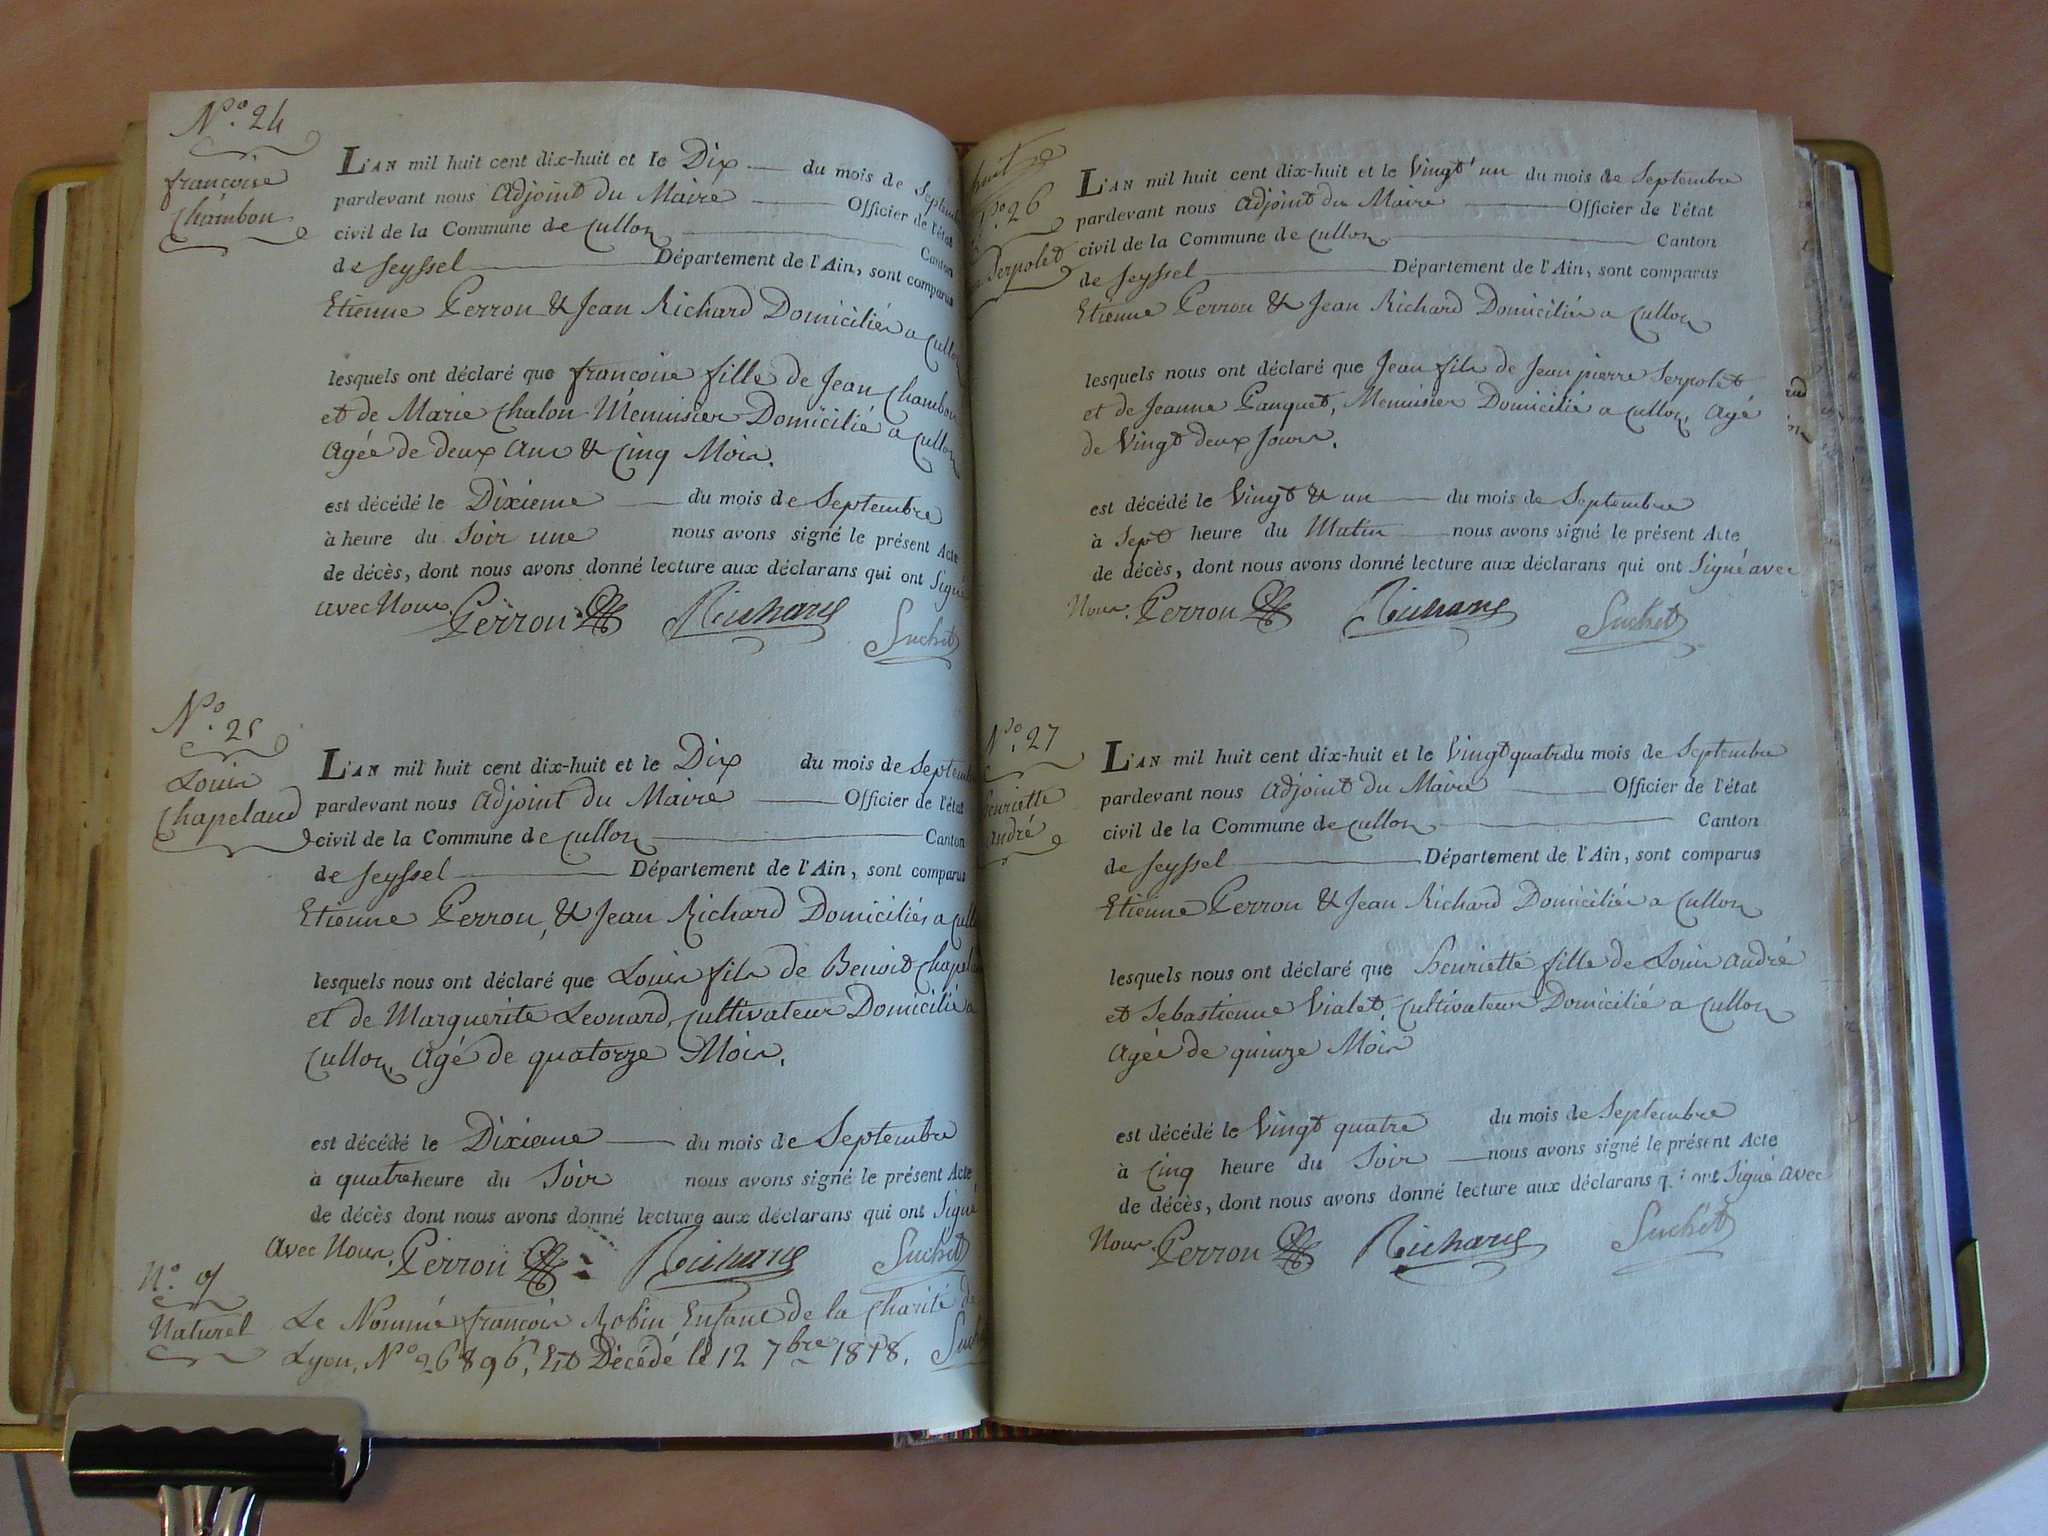 N.° 24
francoise
Chambon
L'AN mil huit cent dix-huit et le Dix du mois de Septemb
pardevant nous Adjoint du Maire Officier de l'état
civil de la Commune de Culloz Canton
de Seyssel Département de l'Ain, sont comparus
Etienne Perron & Jean Richard Domiciliés a Culloz
lesquels ont déclaré que francoise fille de Jean Chambon
et de Marie Chalon Menuisier Domicilié a Culloz
Agée de deux Ans & Cinq Mois.
est décédé le Dixieme du mois de Septembre
à heure du Soir une nous avons signé le présent Acte
de décès, dont nous avons donné lecture aux déclarans qui ont Signé
avec Nous. Perron Richard
Suchet
N.° 25
Louis
Chapeland
L'AN mil huit cent dix-huit et le Dix du mois de Septemb
pardevant nous Adjoint du Maire Officier de l'état
civil de la Commune de Culloz Canton
de Seyssel Département de l'Ain, sont comparus
Etienne Perron, & Jean Richard Domiciliés a Cull
lesquels nous ont déclaré que Louis fils de Benoit Chapel
et de Marguerite Leonard, Cultivateur Domicilié a
Culloz, Agé de quatorze Mois.
est décédé le Dixieme du mois de Septembre
à quatre heure du Soir nous avons signé le présent Acte
de décès dont nous avons donné lecture aux déclarans qui ont Signé
Avec Nous. Perron Richard Suchet
N.° 9
Naturel
Le Nommé françois Robin Enfant de la Charité de
Lyon, N° 26896, Est Décédé le 12 7bre 1818. Such
huit
N° 26
Serpolet
L'AN mil huit cent dix-huit et le Vingt un du mois de Septembre
pardevant nous Adjoint du Maire Officier de l'état
civil de la Commune de Culloz Canton
de Seyssel Département de l'Ain, sont comparus
Etienne Perron & Jean Richard Domiciliés a Culloz
lesquels nous ont déclaré que Jean fils de Jean pierre Serpolet
et de Jeanne Panquet, Menuisier Domicilié a Culloz, Agé
de Vingt deux Jours.
est décédé le Vingt & un du mois de Septembre
à Sept heure du Matin nous avons signé le présent Acte
de décès, dont nous avons donné lecture aux déclarans qui ont Signé avec
Nous. Perron Richard Suchet
N.° 27
henriette
André
L'AN mil huit cent dix-huit et le Vingt quatre du mois de Septembre
pardevant nous Adjoint du Maire Officier de l'état
civil de la Commune de Culloz Canton
de Seyssel Département de l'Ain, sont comparus
Etienne Perron & Jean Richard Domiciliés a Culloz
lesquels nous ont déclaré que henriette fille de Louis André
et Sebastienne Vialet, Cultivateur Domicilié a Culloz
Agée de quinze Mois
est décédé le Vingt quatre du mois de Septembre
à Cinq heure du Soir nous avons signé le présent Acte
de décès, dont nous avons donné lecture aux déclarans qui ont Signé avec
Nous. Perron Richard Suchet